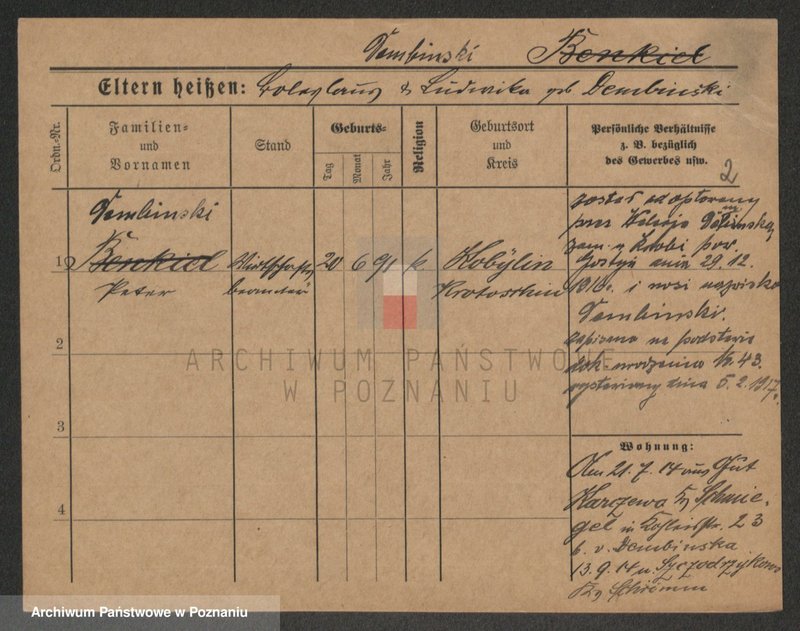 Dembinski Benkiel
Eltern heißen: Boleslaus & Ludwika geb Dembinski
Ordn.-Nr.
Familien-
und
Vornamen
Stand
Geburts-
Tag
Monat
Jahr
Religion
Geburtsort
und
Kreis
Persönliche Verhältnisse
z. B. bezüglich
des Gewerbes usw.
2
Dembinski
1 Benkiel Wirthschafts 20 6 91 k Kobylin
Peter beamter Krotoschin
2
3
4
został adoptowany
przez
zam. w pow.
Gostyń dnia 29.12.
1916 r. i nosi nazwisko
Dembinski.
zapisano na podstawie
dok. urodzenia Nr. 43.
wystawiony dnia 5.2.1917.
Wohnung:
Am 21.7.14 aus Gut
Karczewo Kr Schmie-
gel n 23
b. v. Dembinska
13.9.14 n. Szczodrzykowo
Kr Schrimm
ARCHIWUM PAŃSTWOWE
W POZNANIU
Archiwum Państwowe w Poznaniu